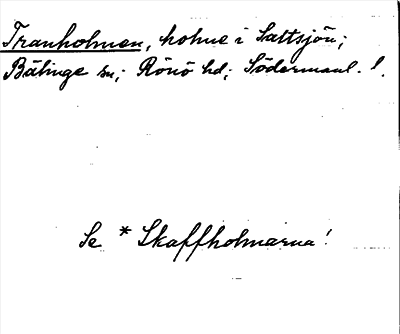 Tranholmen, holme i Saltsjön;
Bälinge sn; Rönö hd; Södermanl. l.
Se * Skaffholmarna!